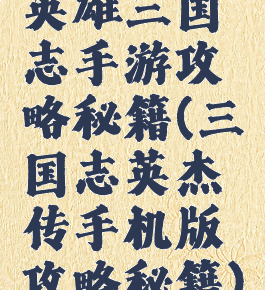 英雄三国
志手游攻
略秘籍(三
国志英杰
传手机版
攻略秘籍)